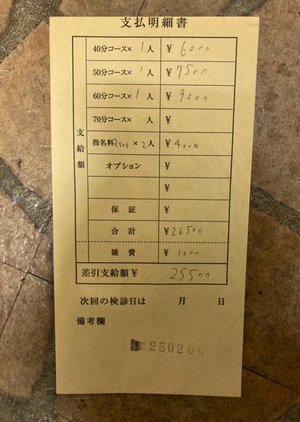 支払明細書
40分コース× 1人 ¥ 6000
50分コース× 1人 ¥ 7500
60分コース× 1人 ¥ 9000
70分コース× 人 ¥
支給額
指名料2000×2人 ¥4000
オプション ¥
¥
保証 ¥
合計 ¥26500
雑費 ¥ 1000
差引支給額¥ 25500
次回の検診日は 月 日
備考欄
250206